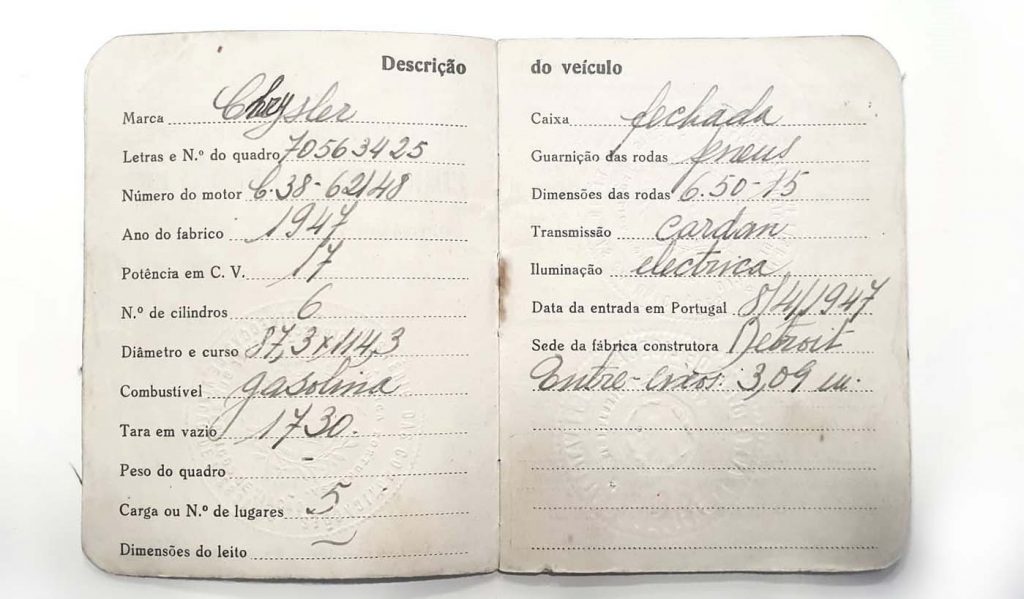 Descrição
Marca Chrysler
Letras e N.º do quadro 70563425
Número do motor C.38-62148
Ano do fabrico 1947
Potência em C. V. 17
N.º de cilindros 6
Diâmetro e curso 87,3x114,3
Combustível gasolina
Tara em vazio 1730.
Peso do quadro –
Carga ou N.º de lugares 5
Dimensões do leito –
do veículo
Caixa fechada
Guarnição das rodas pneus
Dimensões das rodas 6.50-15
Transmissão cardan
Iluminação electrica
Data da entrada em Portugal 8/4/1947
Sede da fábrica construtora Detroit
Entre-eixos: 3,09 m.